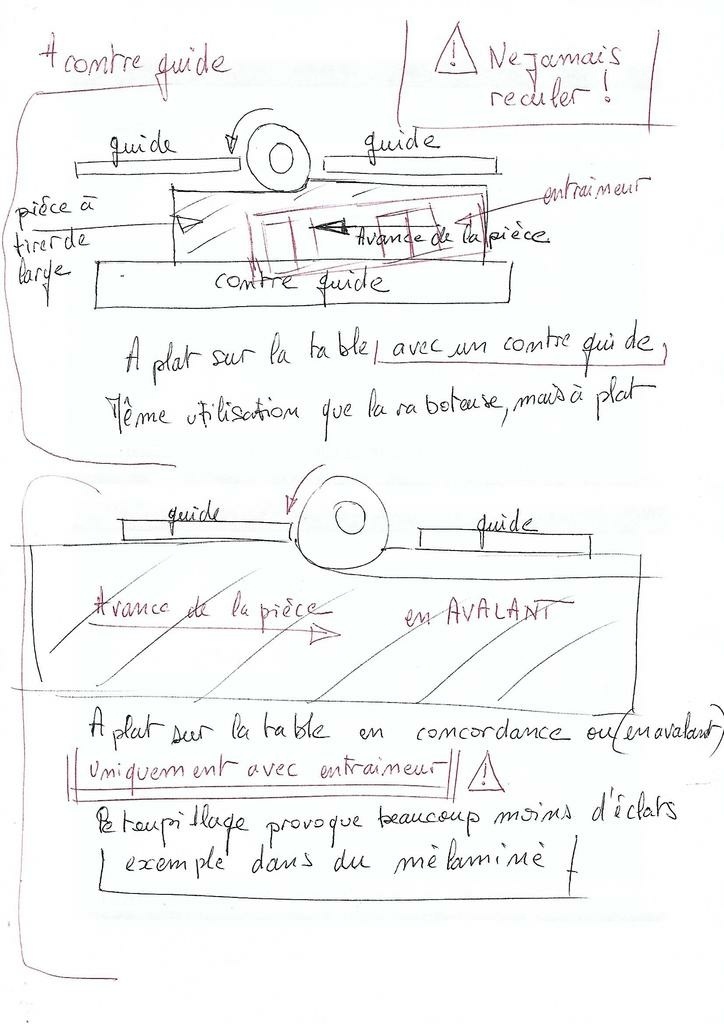 A contre guide
! Ne jamais
reculer !
guide
guide
pièce à
tirer de
large
entraineur
Avance de la pièce
contre guide
A plat sur la table avec un contre guide,
Même utilisation que la raboteuse, mais à plat
guide
guide
Avance de la pièce en AVALANT
A plat sur la table en concordance ou (en avalant)
Uniquement avec entraineur !
toupillage provoque beaucoup moins d'éclats
exemple dans du mélaminé